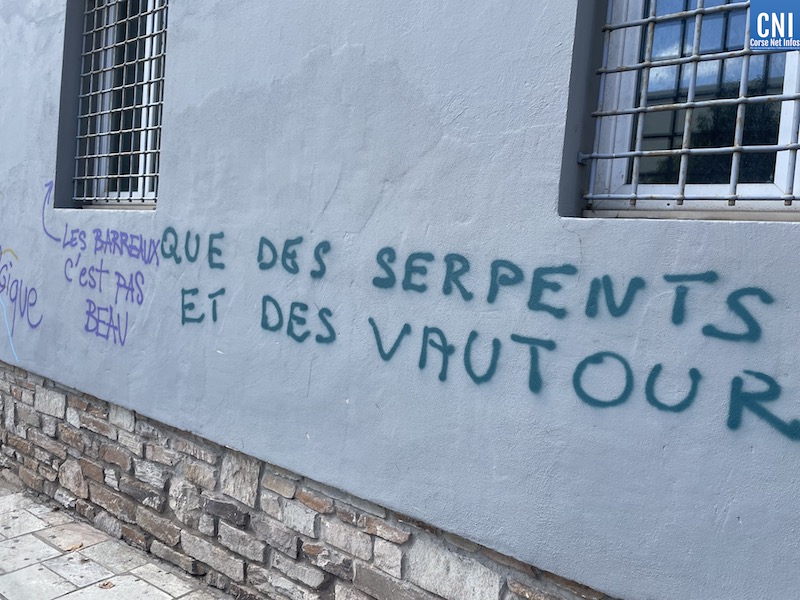 CNI
Corse Net Infos
QUE DES SERPENTS
ET DES VAUTOUR
LES BARREAUX
c'est PAS
BEAU
gique